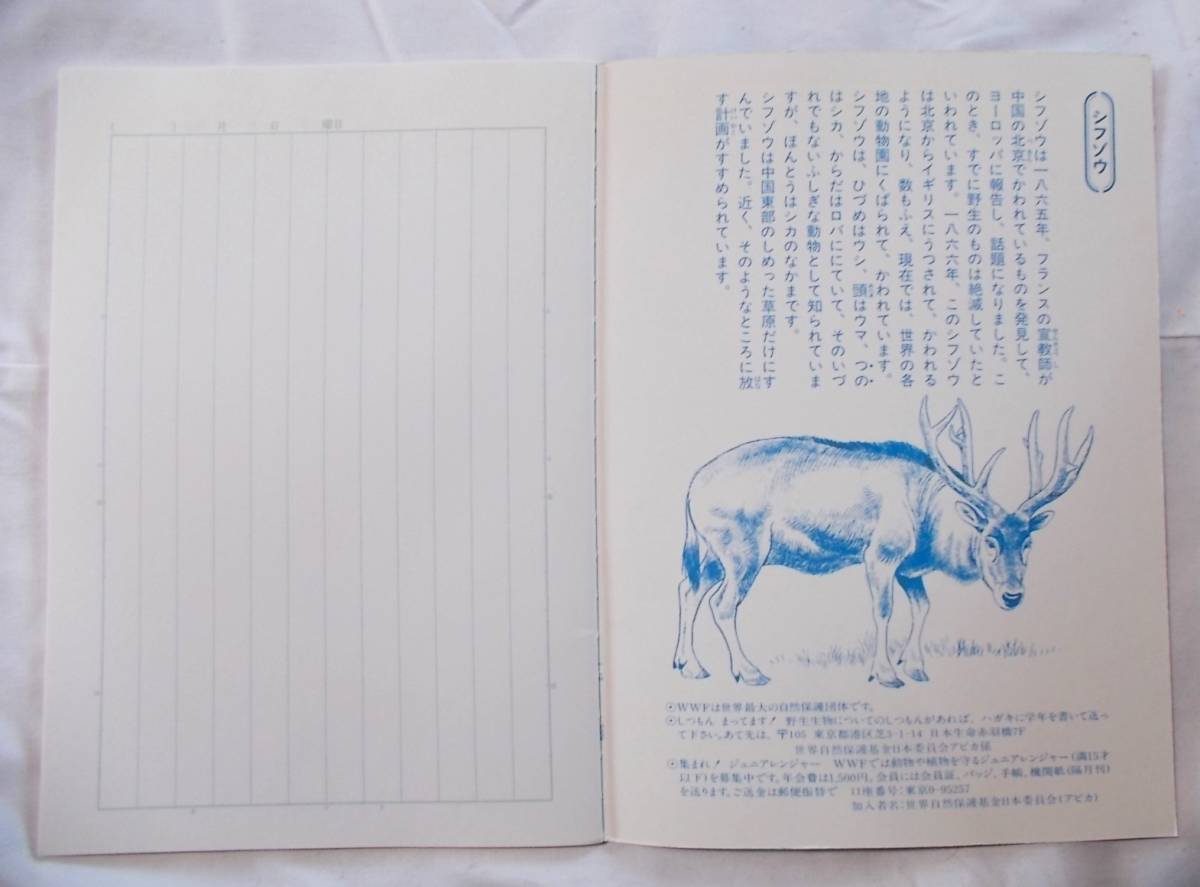 年 月 日 曜日
シフゾウ
シフゾウは一八六五年、フランスの宣教師が
中国の北京でかわれているものを発見して、
ヨーロッパに報告し、話題になりました。こ
のとき、すでに野生のものは絶滅していたと
いわれています。一八六六年、このシフゾウ
は北京からイギリスにうつされて、かわれる
ようになり、数もふえ、現在では、世界の各
地の動物園にくばられて、かわれています。
シフゾウは、ひづめはウシ、頭はウマ、つの
はシカ、からだはロバににていて、そのいづ
れでもないふしぎな動物として知られていま
すが、ほんとうはシカのなかまです。
シフゾウは中国東部のしめった草原だけにす
んでいました。近く、そのようなところに放
す計画がすすめられています。
⊙WWFは世界最大の自然保護団体です。
⊙しつもん まってます! 野生生物についてのしつもんがあれば、ハガキに学年を書いて送っ
て下さい。あて先は、〒105 東京都港区芝3-1-14 日本生命赤羽橋7F
世界自然保護基金日本委員会アピカ係
⊙集まれ! ジュニアレンジャー WWFでは動物や植物を守るジュニアレンジャー(満15才
以下)を募集中です。年会費は1,500円。会員には会員証、バッジ、手帳、機関紙(隔月刊)
を送ります。ご送金は郵便振替で 口座番号:東京0-95257
加入者名:世界自然保護基金日本委員会(アピカ)